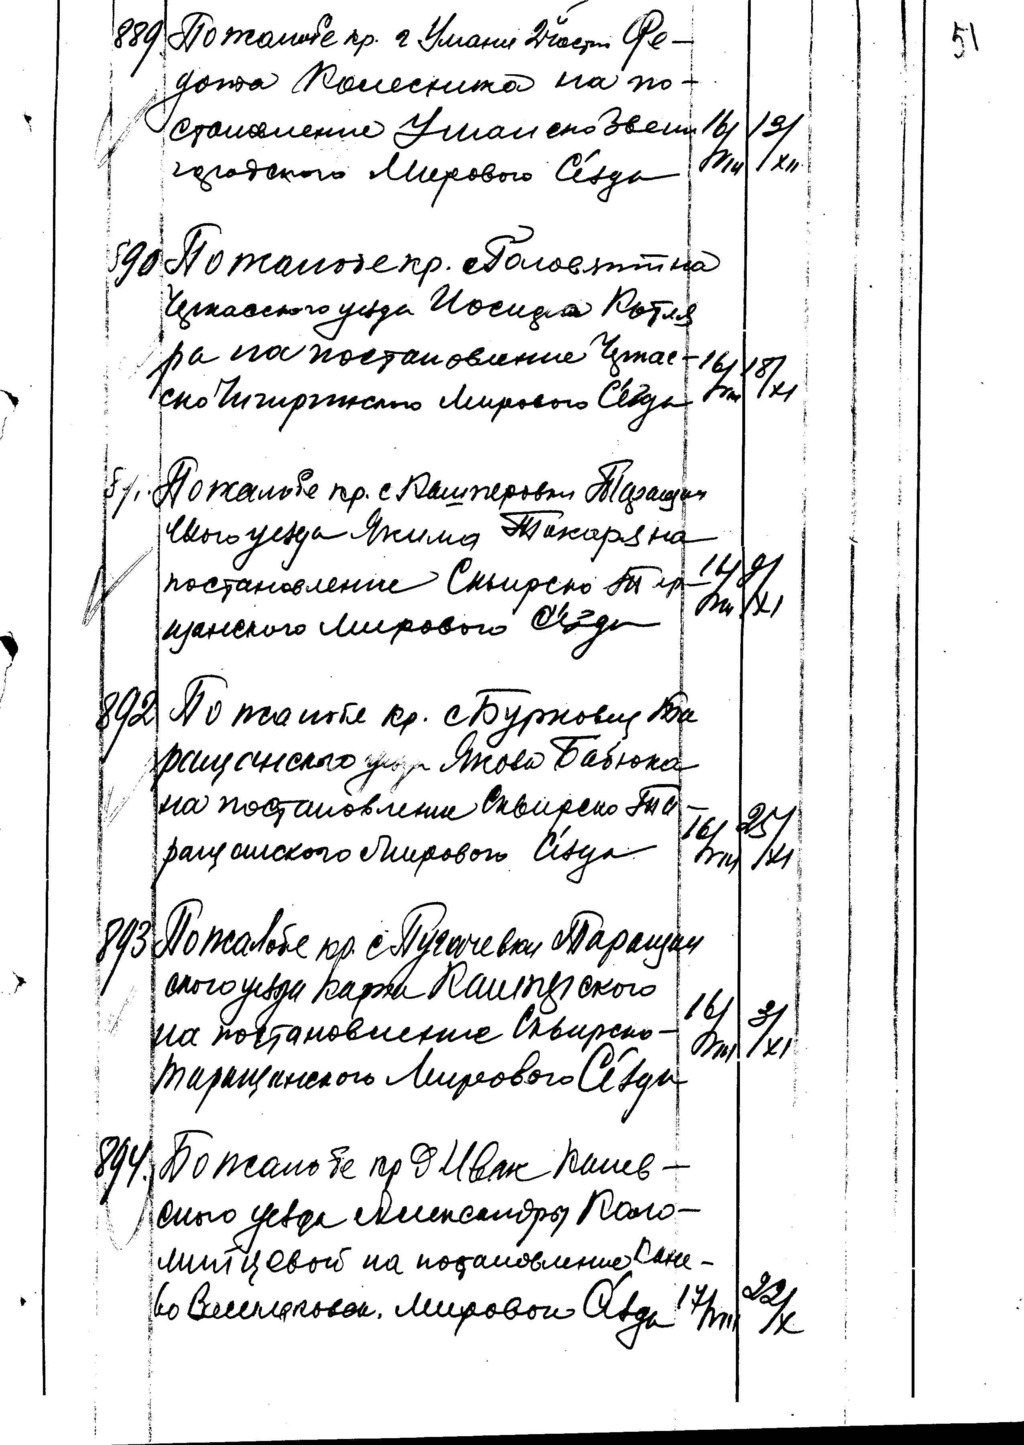 51
889 По жалобе кр. г Умани 2й части Фе-
дота Колесника на по-
становление Уманско Звени 16/VIII 19/XII
городского Мирового Съезда
890 По жалобе кр. с Головятина
Черкасского уезда Иосифа Котля
ра на постановление Черкас- 16/VIII 18/XI
ско Чигиринского Мирового Съезда
По жалобе кр. с Кашперовки Таращан
ского уезда Якима Токаря на
постановление Сквирско Тара- 16/VIII 9/XI
щанского Мирового Съезда
892 По жалобе кр. с Бурковец Та
ращанского уезда Якова Бабюка
на постановление Сквирско Та-
ращанского Мирового Съезда 16/VIII 25/XI
893 По жалобе кр. с Пугачевки Таращан
ского уезда Карпа
на постановление Сквирско- 16/VIII 3/XI
Таращанского Мирового Съезда
894. По жалобе кр Канев-
ского уезда Александры Коло-
мийцевой на постановление Кане-
во Васильковск. Мирового Съезда 17/VIII 22/X